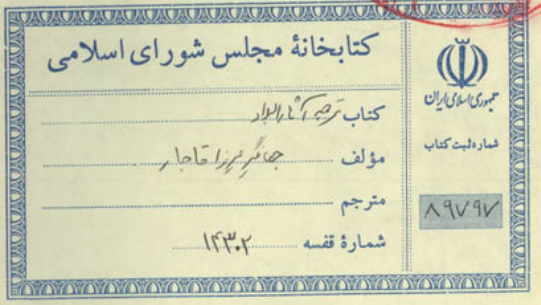 کتابخانهٔ مجلس شورای اسلامی
کتاب ترجمه آثار البلاد
مؤلف جهانگیر میرزا قاجار
مترجم
شمارهٔ قفسه ۱۴۳۰۲
جمهوری اسلامی ایران
شماره ثبت کتاب
۸۹۷۹۷